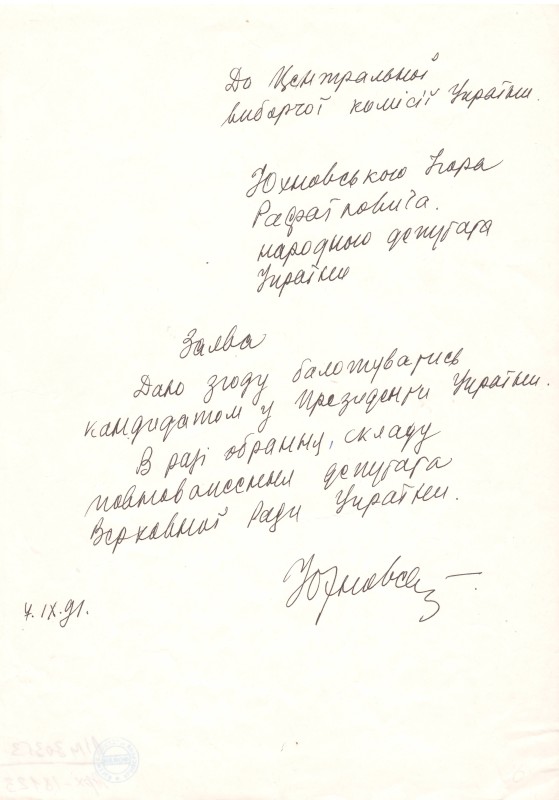 До Центральної
виборчої комісії України.
Юхновського Ігора
Рафаїловича.
народного депутата
України
Заява
Даю згоду балотуватись
кандидатом у Президенти України.
В разі обрання, складу
повноваження депутата
Верховної Ради України.
Юхновс
IX.91.